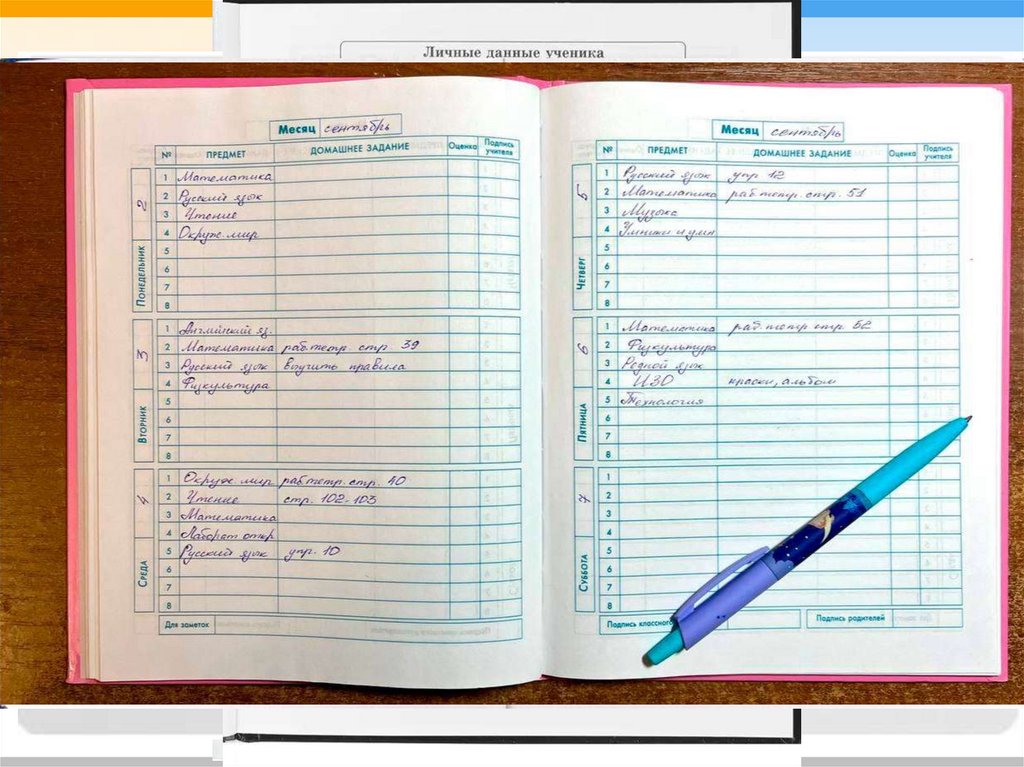 Личные данные ученика
Месяц сентябрь
№ ПРЕДМЕТ ДОМАШНЕЕ ЗАДАНИЕ Оценка Подпись учителя
ПОНЕДЕЛЬНИК 2
1 Математика
2 Русский язык
3 Чтение
4 Окруж. мир
5
6
7
8
ВТОРНИК 3
1 Английский яз.
2 Математика раб.тетр. стр. 39
3 Русский язык выучить правила
4 Физкультура
5
6
7
8
СРЕДА 4
1 Окруж. мир раб.тетр. стр. 40
2 Чтение стр. 102-103
3 Математика
4 Лаборат откр
5 Русский язык упр. 10
6
7
8
Для заметок
Месяц сентябрь
№ ПРЕДМЕТ ДОМАШНЕЕ ЗАДАНИЕ Оценка Подпись учителя
ЧЕТВЕРГ 5
1 Русский язык упр 12
2 Математика раб.тетр. стр. 51
3 Музыка
4 Умники и умн
5
6
7
8
ПЯТНИЦА 6
1 Математика раб.тетр стр. 52
2 Физкультура
3 Родной язык
4 ИЗО краски, альбом
5 Технология
6
7
8
СУББОТА 7
1
2
3
4
5
6
7
8
Подпись классног
Подпись родителей